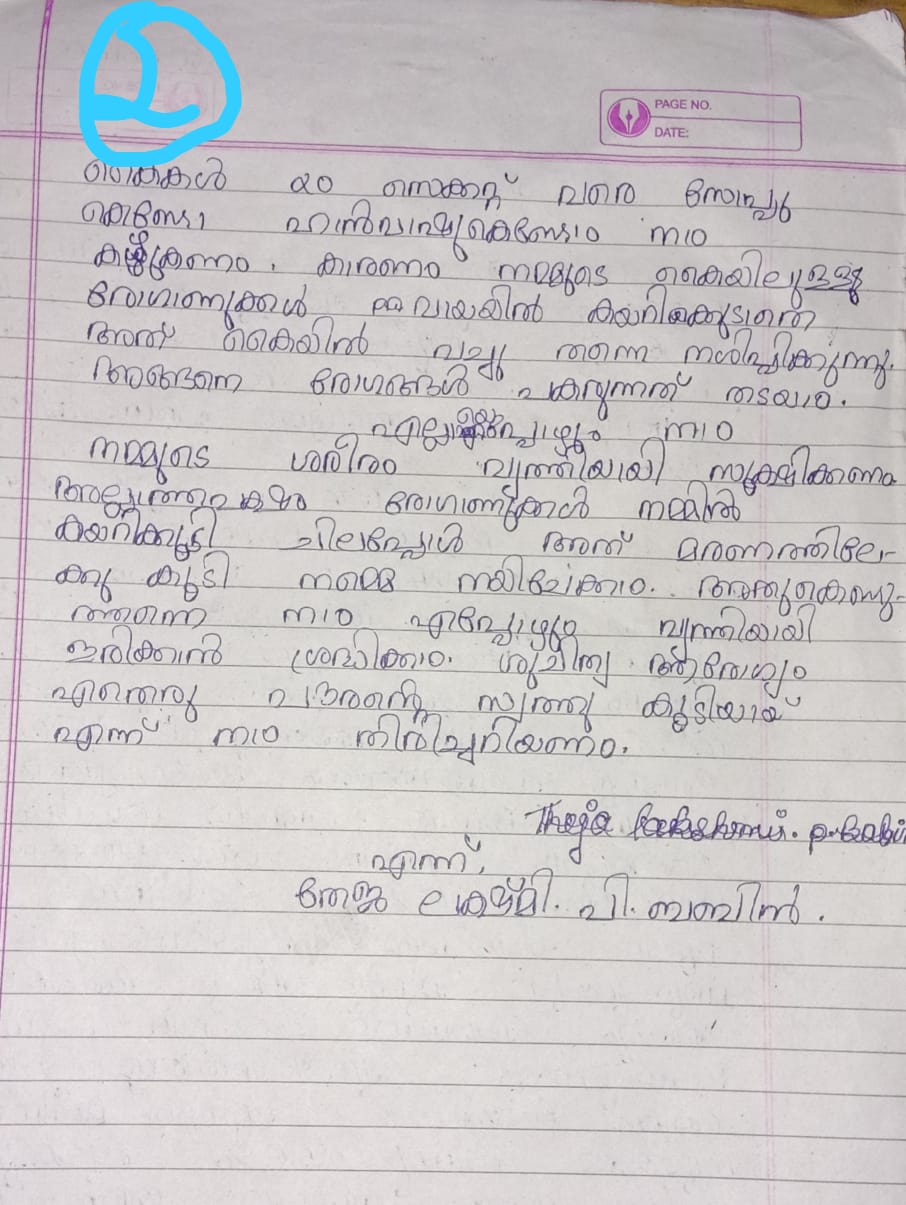 2
PAGE NO.
DATE:
കൈകൾ ൨൦ സെക്കന്റ് വരെ സോപ്പു
കൊണ്ടോ ഹാൻവാഷുകൊണ്ടോ നാം
കഴുകണം. കാരണം നമ്മുടെ കൈയിലുള്ള
രോഗാണുക്കൾ വായയിൽ കയറികൂടാതെ
അത് കൈയിൽ വച്ചു തന്നെ നശിപ്പിക്കുന്നു.
അങ്ങനെ രോഗങ്ങൾ പകരുന്നത് തടയാം.
എല്ലായ്പ്പോഴും നാം
നമ്മുടെ ശരീരം വൃത്തിയായി സൂക്ഷിക്കണം
അല്ലാത്തപക്ഷം രോഗാണുക്കൾ നമ്മിൽ
കയറിക്കൂടി ചിലപ്പോൾ അത് മരണത്തിലേ-
ക്കു കൂടി നമ്മെ നയിച്ചേക്കാം. അതുകൊണ്ടു-
തന്നെ നാം എപ്പോഴും വൃത്തിയായി
ഇരിക്കാൻ ശ്രദ്ധിക്കാം. ശുചിത്വ ആരോഗ്യം
എന്നൊരു പൗരന്റെ സ്വത്തു കൂടിയാണ്
എന്ന് നാം തിരിച്ചറിയണം.
Theja Lekshmi. P. Babi
എന്ന്,
തേജ ലക്ഷ്മി. പി. ബബിൻ.